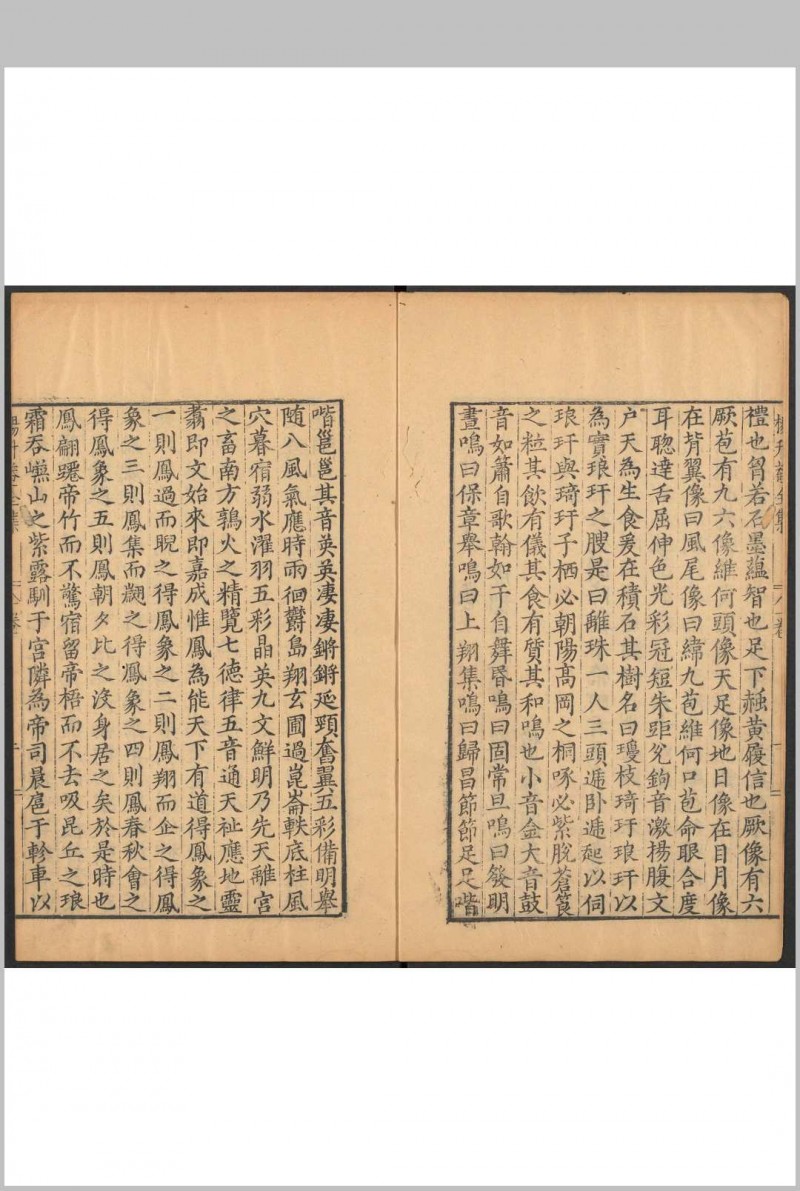 禮也胷若石墨蘊智也足下赩黄履信也厥像有六
厥苞有九六像維何頭像天足像地目像在日月像
在背翼像曰風尾像曰緯九苞維何口苞命眼合度
耳聰達舌屈伸色光彩冠短朱距兊鉤音激揚腹文
户天為生食爰在積石其樹名曰瓊枝琦玗琅玕以
為實琅玕之䐹是曰離珠一人三頭遞卧遞起以伺
琅玕與琦玗子栖必朝陽髙岡之桐啄必紫脫蒼筤
之粒其飲有儀其食有質其和鳴也小音金大音鼓
音如簫自歌翰如干自舞昬鳴曰固常旦鳴曰發明
晝鳴曰保章舉鳴曰上翔集鳴曰歸昌節節足足喈
喈邕邕其音英英凄凄鏘鏘延頸奮翼五彩備明舉
随八風氣應時雨徊鬱島翔玄圃過崑崙軼底柱風
穴暮宿弱水濯羽五彩晶英九文鮮明乃先天離宮
之畜南方鶉火之精覽七德律五音通天祉應地靈
翥即文始來即嘉成惟鳳為能天下有道得鳳象之
一則鳳過而睨之得鳳象之二則鳳翔而企之得鳳
象之三則鳳集而翽之得鳳象之四則鳳春秋會之
得鳳象之五則鳳朝夕比之没身居之矣於是時也
鳳翩躚帝竹而不驚宿留帝梧而不去吸昆丘之琅
霜吞㠥山之紫露馴于宮隣為帝司晨扈于軫車以